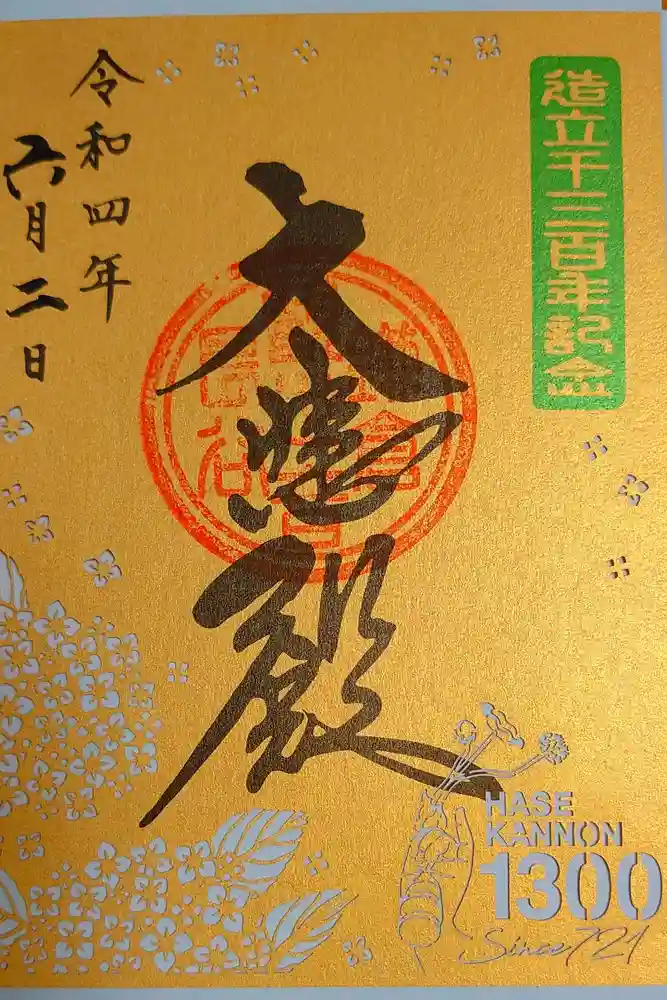 造立千三百年記念
大悲殿
令和四年
六月二日
HASE
KANNON
1300
Since 721